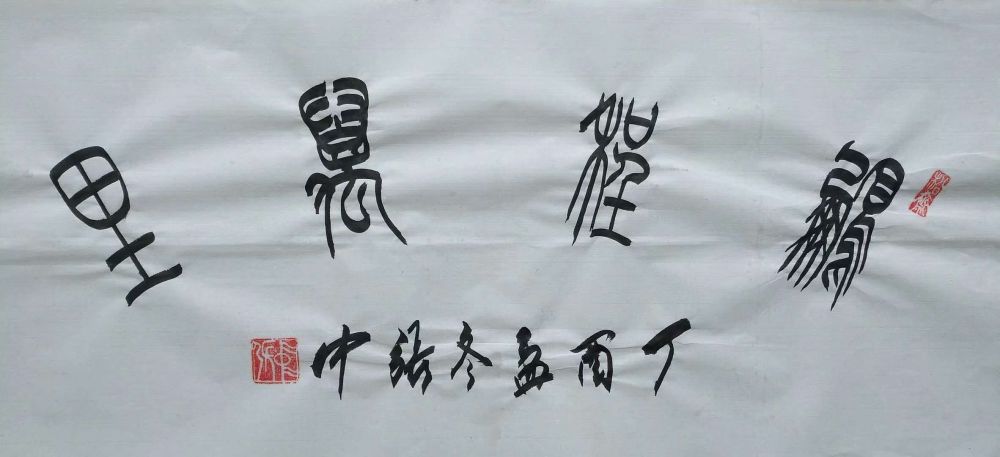 鵬程萬里
丁酉孟冬中